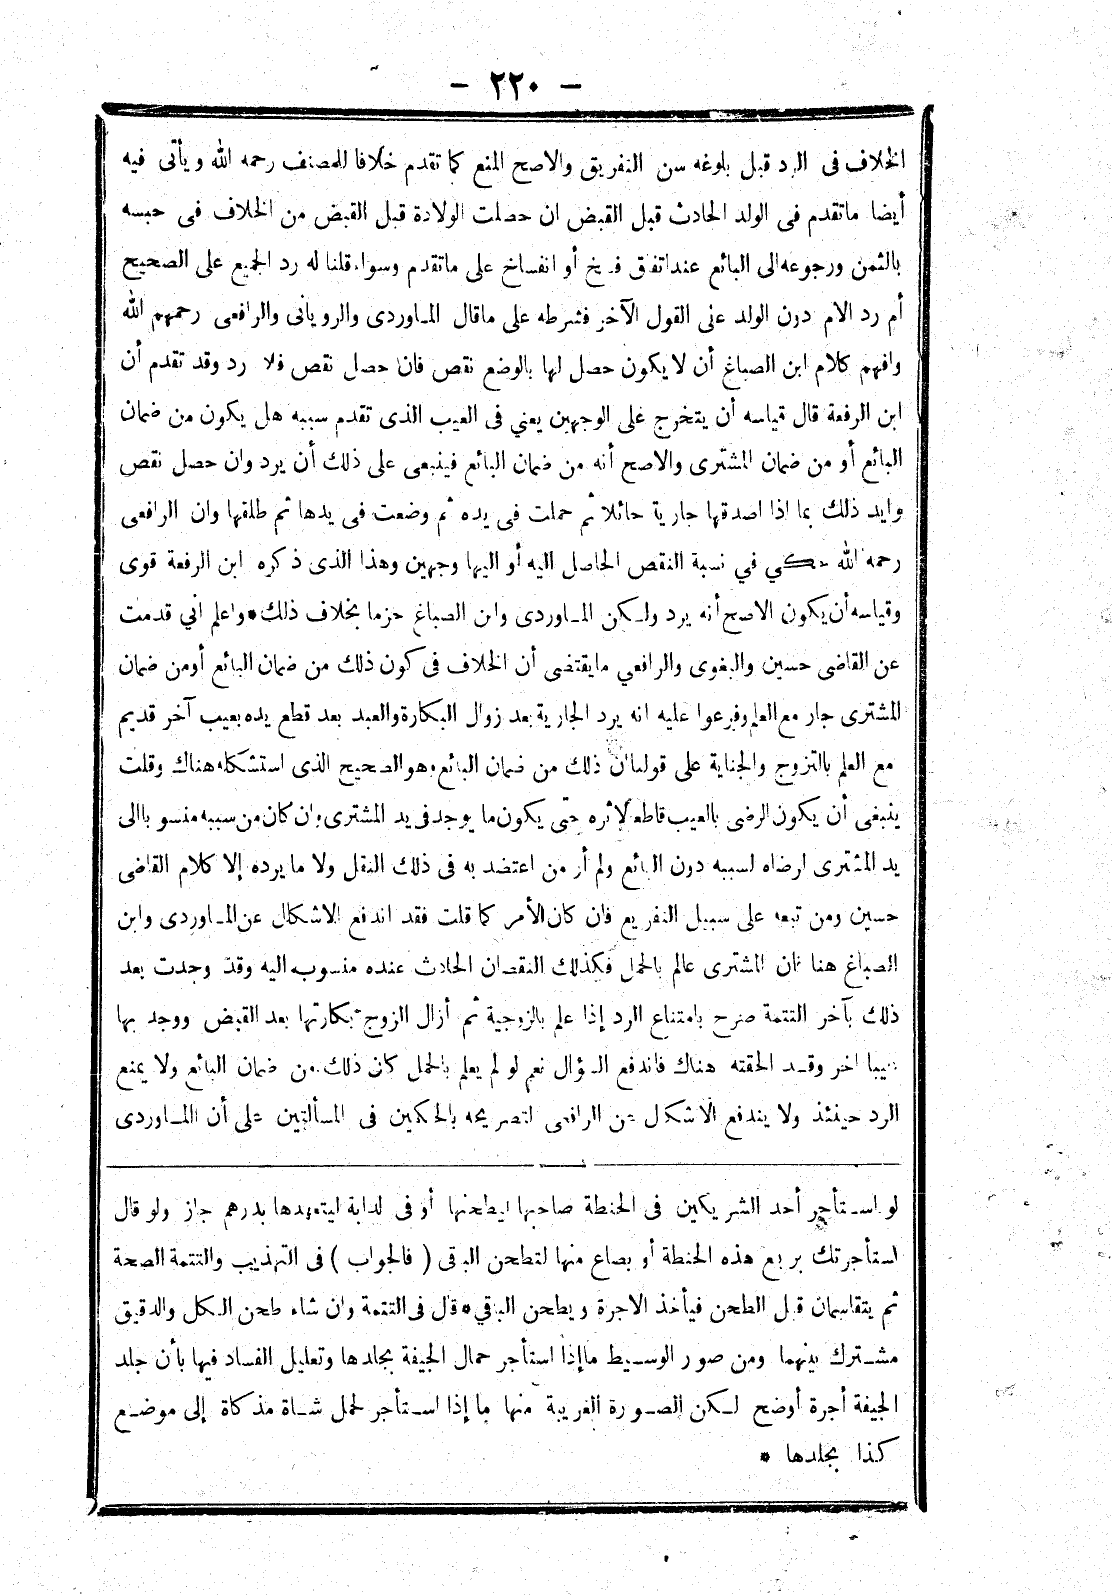 - ٢٢٠ -
الخلاف فى الرد قبل بلوغه سن التفريق والاصح المنع كما تقدم خلافا للمصنف رحمه الله ويأتى فيه
أيضا ماتقدم فى الولد الحادث قبل القبض ان حصلت الولادة قبل القبض من الخلاف فى حبسه
بالثمن ورجوعه الى البائع عند اتفق فسخ أو انفساخ على ماتقدم وسواء قلنا له رد الجميع على الصحيح
أم رد الام دون الولد على القول الآخر فشرطه على ماقال المـاوردى والرويانى والرافعى رحمهم الله
وافهم كلام ابن الصباغ أن لا يكون حصل لها بالوضع نقص فان حصل نقص فلا رد وقد تقدم أن
ابن الرفعة قال قياسه أن يتخرج على الوجهين يعني فى العيب الذى تقدم سببه هل يكون من ضمان
البائع أو من ضمان المشترى والاصح أنه من ضمان البائع فينبغى على ذلك أن يرد وان حصل نقص
وايد ذلك بما اذا اصدقها جارية حائلا ثم حملت فى يده ثم وضعت فى يدها ثم طلقها وان الرافعى
رحمه الله حكي في نسبة النقص الحاصل اليه أو اليها وجهين وهذا الذى ذكره ابن الرفعة قوى
وقياسه أن يكون الاصح أنه يرد ولـكن المـاوردى وابن الصباغ جزما بخلاف ذلك * واعلم اني قدمت
عن القاضى حسين والبغوى والرافعي مايقتضى أن الخلاف فى كون ذلك من ضمان البائع أومن ضمان
المشترى جار مع العلم وفرعوا عليه انه يرد الجارية بعد زوال البكارة والعبد بعد قطع يده بعيب آخر قديم
مع العلم بالتزوج والجناية على قولنا ان ذلك من ضمان البائع وهو الصحيح الذى استشكله هناك وقلت
ينبغى أن يكون الرضى بالعيب قاطعا لاثره حتى يكون ما يوجد فى يد المشترى وان كان من سببه منسوبا الى
يد المشترى ارضاه لسببه دون البائع ولم أر من اعتضد به فى ذلك النقل ولا ما يرده إلا كلام القاضى
حسين ومن تبعه على سبيل التفريع فان كان الأمر كما قلت فقد اندفع الاشكال عن المـاوردى وابن
الصباغ هنا فان المشترى عالم بالحمل فكذلك النقصان الحادث عنده منسوب اليه وقد وجدت بعد
ذلك بآخر التتمة صرح بامتناع الرد إذا علم بالزوجية ثم أزال الزوج بكارتها بعد القبض ووجد بها
عيبا اخر وقـد الحقته هناك فاندفع السؤال نعم لو لم يعلم بالحمل كان ذلك من ضمان البائع ولا يمنع
الرد حينئذ ولا يندفع الاشكال عن الرافعى لتصريحه بالحكمين فى المسألتين على أن المـاوردى
لو اسـتأجر أحد الشريكين فى الحنطة صاحبها ليطحنها أو فى الدابة ليتعهدها بدرهم جاز ولو قال
استأجرتك بربع هذه الحنطة أو بصاع منها لتطحن الباقى ( فالجواب ) فى التهذيب والتتمة الصحة
ثم يتقاسمان قبل الطحن فيأخذ الاجرة ويطحن الباقي * قال فى التتمة وان شاء طحن الـكل والدقيق
مشـترك بينهما ومن صور الوسـيط ماإذا استأجر حمال الجيفة بجلدها وتعليل الفساد فيها بأن جلد
الجيفة أجرة أوضح لـكن الصـورة الغريبة منها ما إذا اسـتأجر لحمل شـاة مذكاة إلى موضـع
كذا بجلدها *